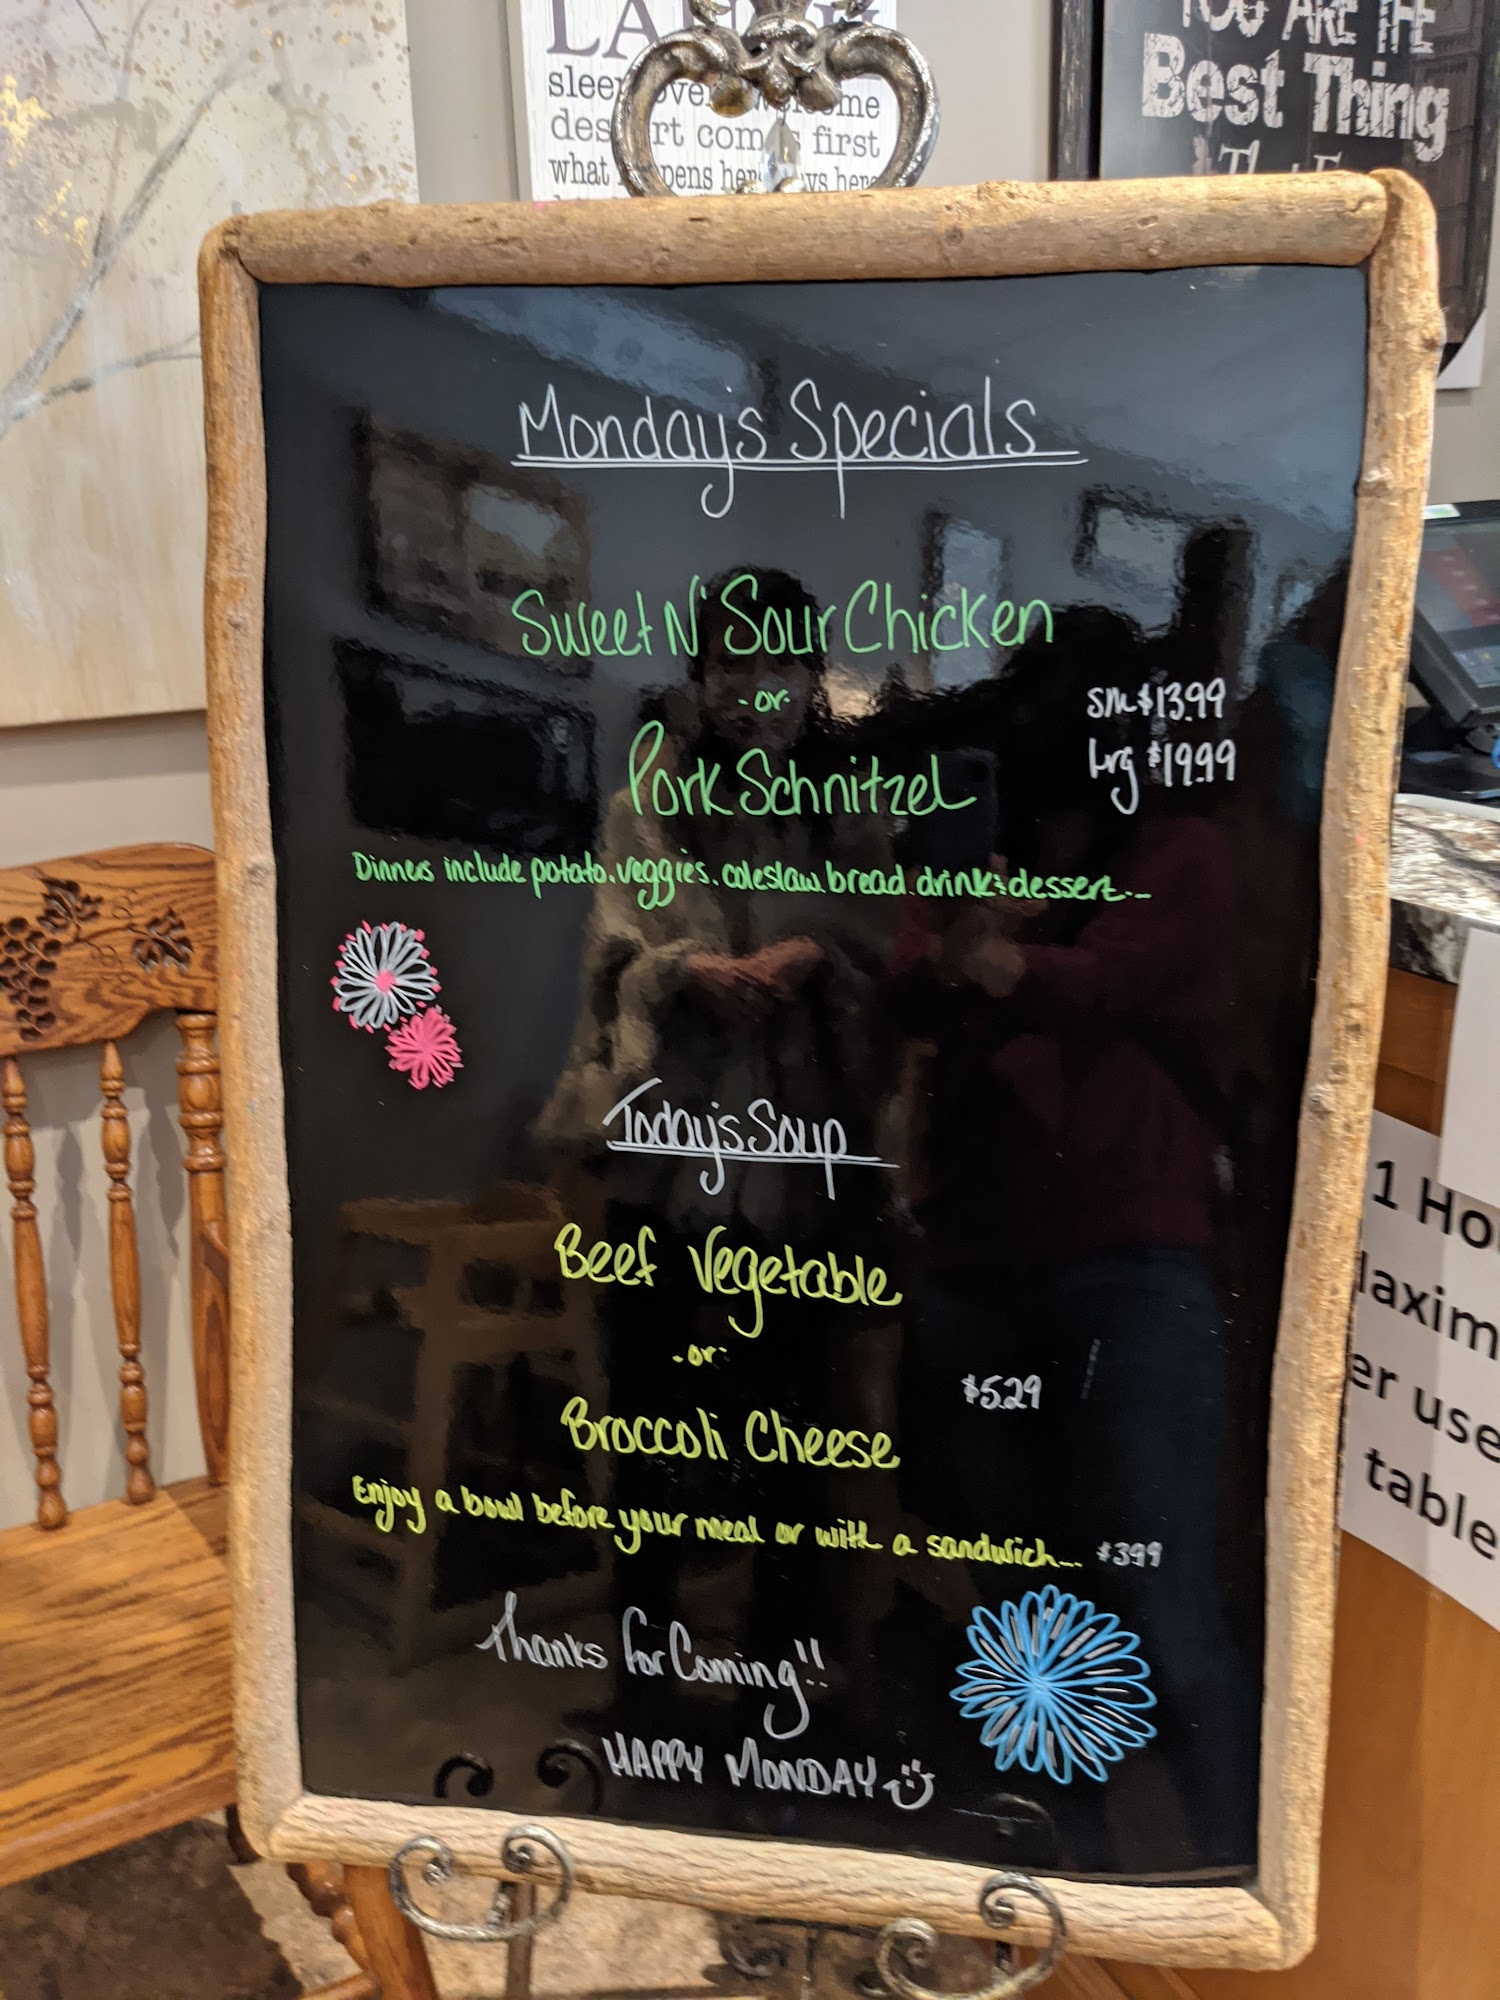 LAUGH
sleep over welcome
dessert comes first
what happens here stays here
YOU ARE THE
Best Thing
Monday's Specials
Sweet N' Sour Chicken
-or-
sm $13.99
Pork Schnitzel
Lrg $19.99
Dinners include potato, veggies, coleslaw, bread, drink & dessert...
Today's Soup
Beef Vegetable
-or-
$5.29
Broccoli Cheese
Enjoy a bowl before your meal or with a sandwich... $3.99
Thanks for Coming!!
HAPPY MONDAY
1 Ho
axim
er use
table